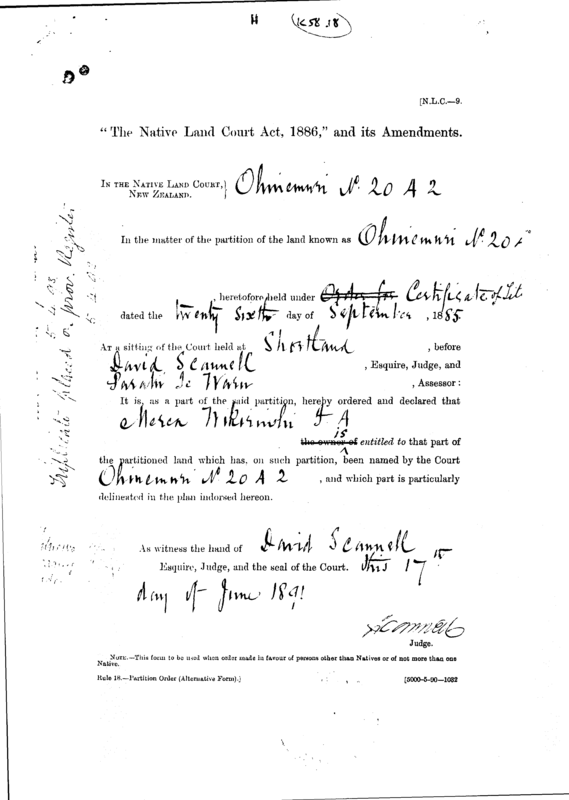 H K58.18
D
[N.L.C.—9.
"The Native Land Court Act, 1886," and its Amendments.
IN THE NATIVE LAND COURT,} Ohinemuri No. 20 A 2
NEW ZEALAND.
In the matter of the partition of the land known as Ohinemuri No. 20
, heretofore held under Order for Certificate of
dated the twenty sixth day of September, 1885
At a sitting of the Court held at Shortland, before
David Scannell, Esquire, Judge, and
, Assessor:
It is, as a part of the said partition, hereby ordered and declared that
Merea
is
the owner of entitled to that part of
the partitioned land which has, on such partition, been named by the Court
Ohinemuri No 20 A 2, and which part is particularly
delineated in the plan indorsed hereon.
As witness the hand of David Scannell
Esquire, Judge, and the seal of the Court. this 17th
day of June 1891
Scannell
Judge.
NOTE.—This form to be used when order made in favour of persons other than Natives or of not more than one
Native.
Rule 18.—Partition Order (Alternative Form).] [5000-5-90—1032
placed on prov. Register